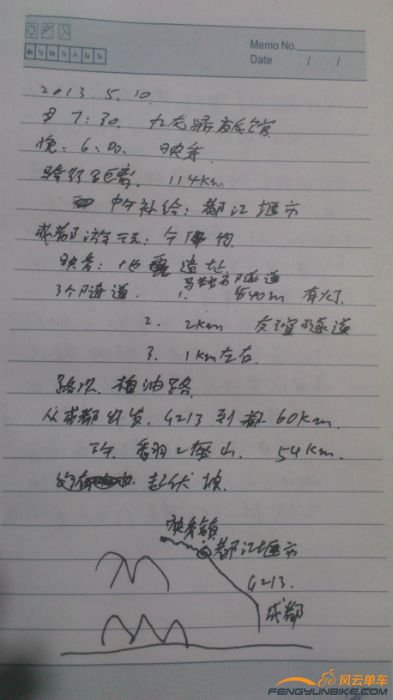 Memo No.
Date / /
Mo Tu We Th Fr Sa Su
2013.5.10.
早 7:30. 九龙
晚: 6:00. 映秀
骑行距离. 114km
中午补给: 都江堰市
成都 游玩: 个 物
映秀: 地震遗址
3个隧道. 1. 隧道 m 有灯
2. 2km 友谊隧道
3. 1km左右.
路况. 柏油路
从成都出发. G213 到都 60km.
翻 山. 54km.
起伏坡.
映秀镇
都江堰市
G213.
成都
风云单车
FENGYUNBIKE.COM